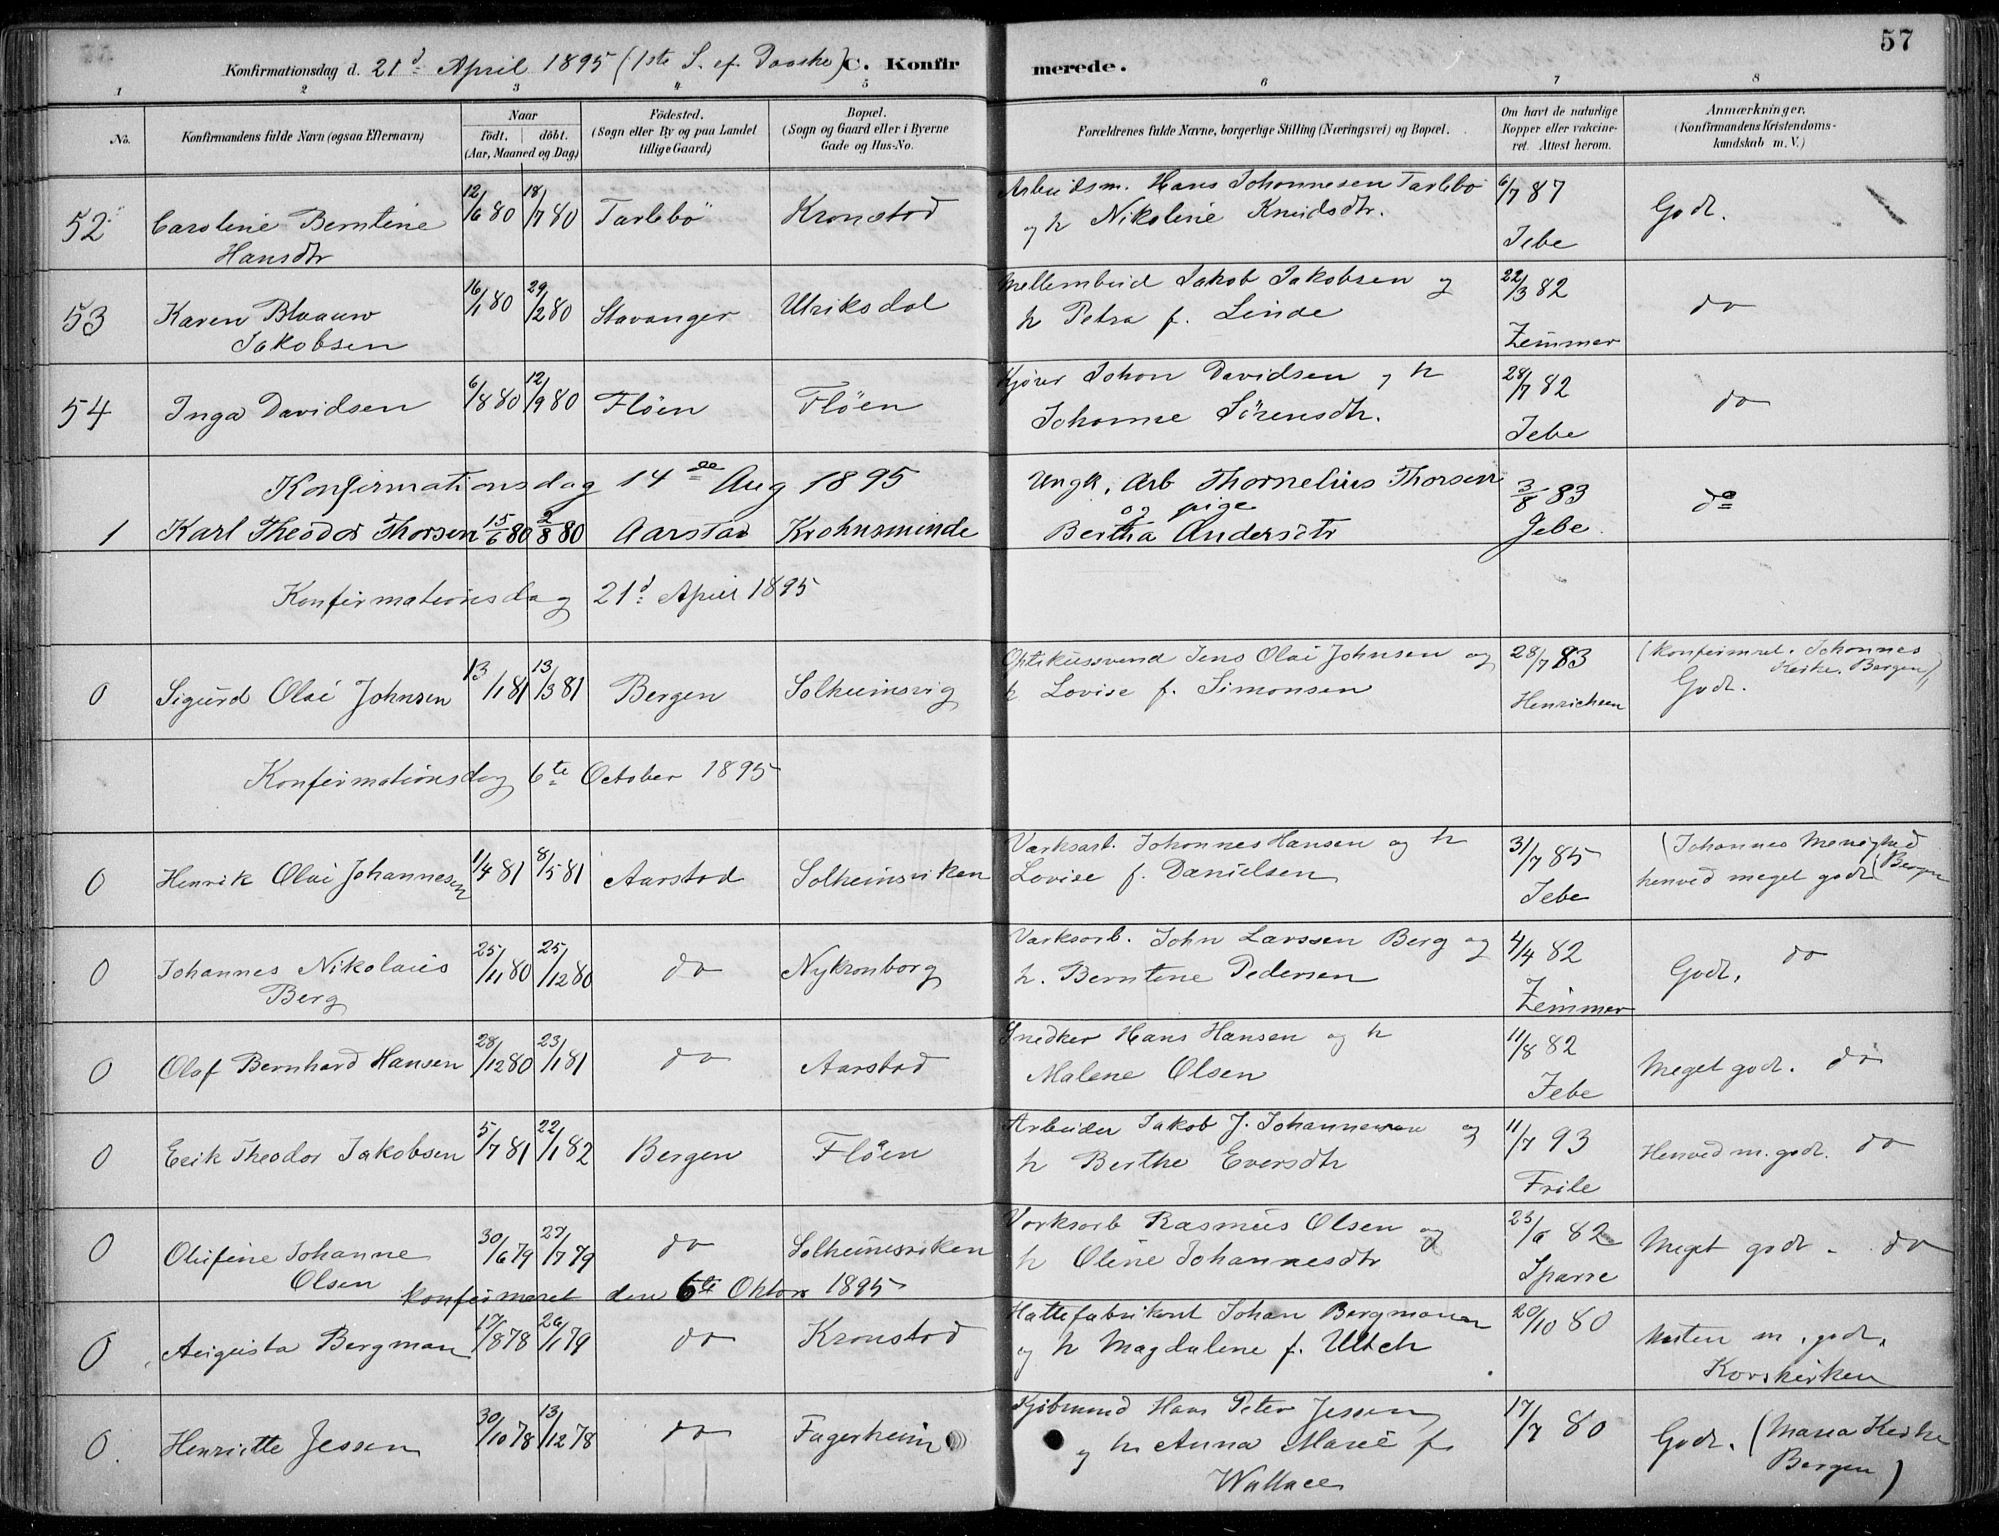 57
Konfirmationsdag d. 21d April 1895 (1ste S. ef. Paaske) C. Konfirmerede.
1 2 3 4 5 6 7 8
No. Konfirmandens fulde Navn (ogsaa Efternavn) Naar födt. döbt. (Aar, Maaned og Dag) Födested. (Sogn eller By og paa Landet tillige Gaard) Bopæl. (Sogn og Gaard eller i Byerne Gade og Hus-No. Forældrenes fulde Navne, borgerlige Stilling (Næringsvei) og Bopæl. Om havt de naturlige Kopper eller vakcineret. Attest herom. Anmærkninger, (Konfirmandens Kristendomskundskab m. V.)
52 Caroline Berntine Hansdtr 12/6 80 18/7 80 Tarlebö Kronstad Arbeidsm. Hans Johannesen Tarlebö og h Nikoline Knudsdtr. 6/7 87 Jebe Godt.
53 Karen Blaauw Jakobsen 16/1 80 29/2 80 Stavanger Ulriksdal Mellembud Jakob Jakobsen og h Petra f. Linde 22/3 82 Zimmer do
54 Inga Davidsen 6/8 80 12/9 80 Flöen Flöen Kjörer Johan Davidsen og h Johanne Sörensdtr. 28/7 82 Jebe do
Konfirmationsdag 14de Aug 1895
1 Karl Theodor Thorsen 15/6 80 2/8 80 Aarstad Krohnsminde Ungk. Arb Thornelius Thorsen og pige Bertha Andersdtr 3/8 83 Jebe. do
Konfirmationsdag 21d April 1895
0 Sigurd Olai Johnsen 13/1 81 13/3 81 Bergen Solheimsvig Optikussvend Jens Olai Johnsen og h Lovise f. Simonsen 28/7 83 Henrichsen (Konfirmret. Johannes Kirke, Bergen) Godt.
Konfirmationsdag 6te October 1895
0 Henrik Olai Johannesen 1/4 81 8/5 81 Aarstad Solheimsviken Værksarb. Johannes Hansen og h Lovise f. Danielsen 31/7 85 Jebe (Johannes Menighed Bergen) henved meget godt
0 Johannes Nikolaus Berg 25/11 80 25/12 80 do Nykronborg Værksarb. John Larssen Berg og h. Berntine Pedersen 4/4 82 Zimmer Godt, do
0 Olaf Bernhard Hansen 28/12 80 23/1 81 do Aarstad Snedker Hans Hansen og h Malene Olsen 11/8 82 Jebe Meget godt. do
0 Erik Theodor Jakobsen 5/7 81 22/1 82 Bergen Flöen Arbeider Jakob J. Johannesen og h Berthe Eversdtr 11/7 93 Friele Henved m. godt. do
0 Olufine Johanne Olsen 30/6 79 27/7 79 do Solheimsviken Værksarb Rasmus Olsen og h Oline Johannesdtr 23/6 82 Sparre Meget godt. do
konfirmeret den 6te Oktor 1895
0 Augusta Bergman 17/8 78 26/1 79 do Kronstad Hattefabrikant Johan Bergmann og h Magdalene f. Ultch 20/10 80 Næsten m. godt. Korskirken
0. Henriette Jessen 30/10 78 13/12 78 do Fagerheim Kjöbmand Hans Peter Jessen og h. Anna Marie f. Wallace 17/7 80 Godt. (Maria Kirke Bergen)